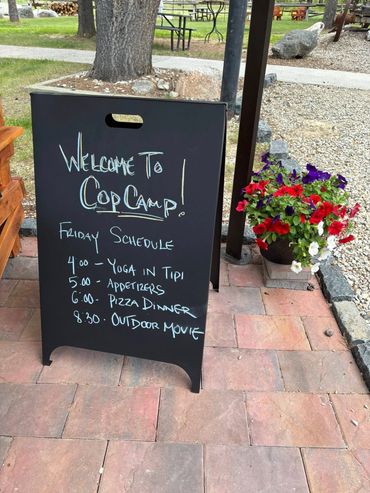 WELCOME TO
COPCAMP!
FRIDAY SCHEDULE
4:00 - YOGA IN TIPI
5:00 - APPETIZERS
6:00 - PIZZA DINNER
8:30 - OUTDOOR MOVIE